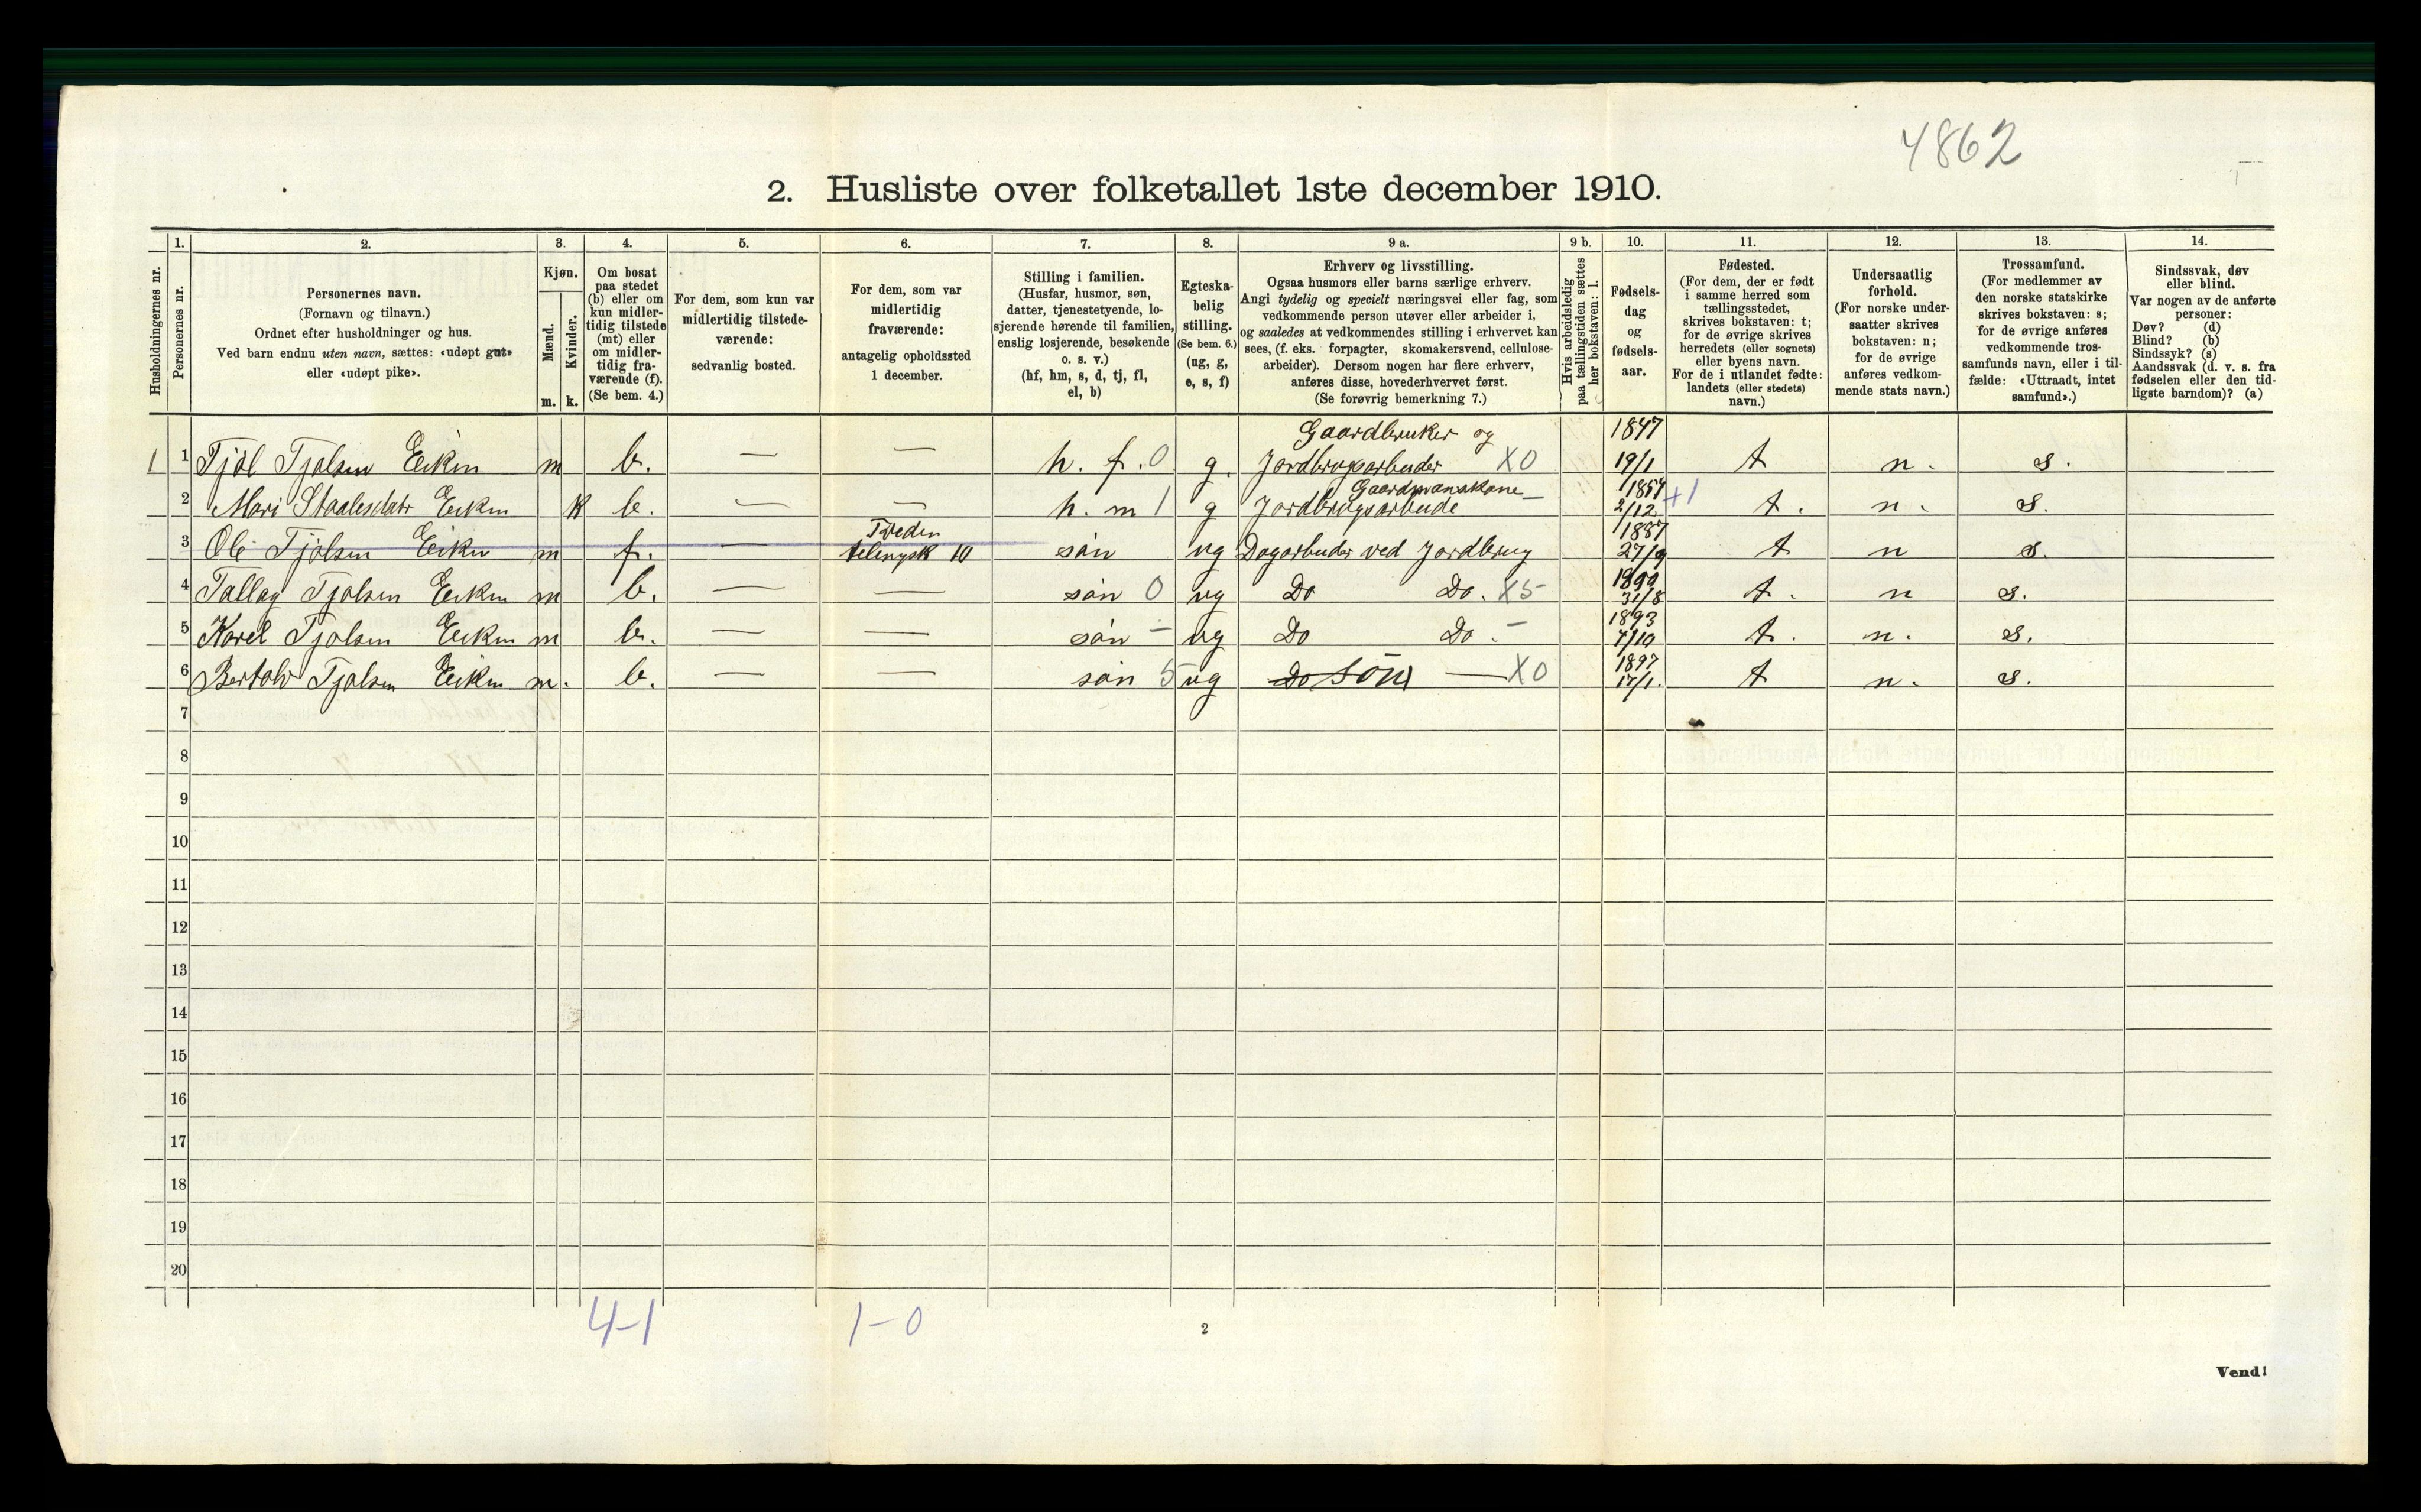 4862
2. Husliste over folketallet 1ste december 1910.
Husholdningernes nr.
1.
Personernes nr.
2.
Personernes navn.
(Fornavn og tilnavn.)
Ordnet efter husholdninger og hus.
Ved barn endnu uten navn, sættes: «udøpt gut»
eller «udøpt pike».
3.
Kjøn.
Mænd.
Kvinder.
m. k.
4.
Om bosat
paa stedet
(b) eller om
kun midler-
tidig tilstede
(mt) eller
om midler-
tidig fra-
værende (f).
(Se bem. 4.)
5.
For dem, som kun var
midlertidig tilstede-
værende:
sedvanlig bosted.
6.
For dem, som var
midlertidig
fraværende:
antagelig opholdssted
1 december.
7.
Stilling i familien.
(Husfar, husmor, søn,
datter, tjenestetyende, lo-
sjerende hørende til familien,
enslig losjerende, besøkende
o. s. v.)
(hf, hm, s, d, tj, fl,
el, b)
8.
Egteska-
belig
stilling.
(Se bem. 6.)
(ug, g,
e, s, f)
9 a.
Erhverv og livsstilling.
Ogsaa husmors eller barns særlige erhverv.
Angi tydelig og specielt næringsvei eller fag, som
vedkommende person utøver eller arbeider i,
og saaledes at vedkommendes stilling i erhvervet kan
sees, (f. eks. forpagter, skomakersvend, cellulose-
arbeider). Dersom nogen har flere erhverv,
anføres disse, hovederhvervet først.
(Se forøvrig bemerkning 7.)
9 b.
Hvis arbeidsledig
paa tællingstiden sættes
her bokstaven: l.
10.
Fødsels-
dag
og
fødsels-
aar.
11.
Fødested.
(For dem, der er født
i samme herred som
tællingsstedet,
skrives bokstaven: t;
for de øvrige skrives
herredets (eller sognets)
eller byens navn.
For de i utlandet fødte:
landets (eller stedets)
navn.)
12.
Undersaatlig
forhold.
(For norske under-
saatter skrives
bokstaven: n;
for de øvrige
anføres vedkom-
mende stats navn.)
13.
Trossamfund.
(For medlemmer av
den norske statskirke
skrives bokstaven: s;
for de øvrige anføres
vedkommende tros-
samfunds navn, eller i til-
fælde: «Uttraadt, intet
samfund».)
14.
Sindssvak, døv
eller blind.
Var nogen av de anførte
personer:
Døv? (d)
Blind? (b)
Sindssyk? (s)
Aandssvak (d. v. s. fra
fødselen eller den tid-
ligste barndom)? (a)
Gaardbruker og 1847
1 1 Tjöl Tjølsen Eikin m b. — — h. f. 0 g. Jordbrugsarbeider X0 19/1 t n. s.
Gaardmanskone — 1857
2 Mari Staalesdatr Eikin K b. — — h. m 1 g Jordbrugsarbeide 2/12 +1 t. n. s.
1887
3 Ole Tjølsen Eikin m f. — 10 sön ug Dagarbeider ved Jordbrug 27/9 t n s.
4 Tallag Tjølsen Eikin m b. — — sön 0 ug Do Do. X5 31/8 t. n s.
1893
5 Karel Tjølsen Eikin m b. — — sön – ug Do Do. – 7/10 t. n. s.
1897
6 Bertolv Tjølsen Eikin m. b. — — sön 5 ug Do sön — X0 17/1. t n. s.
7
8
9
10
11
12
13
14
15
16
17
18
19
20
4-1 1-0
2
Vend!